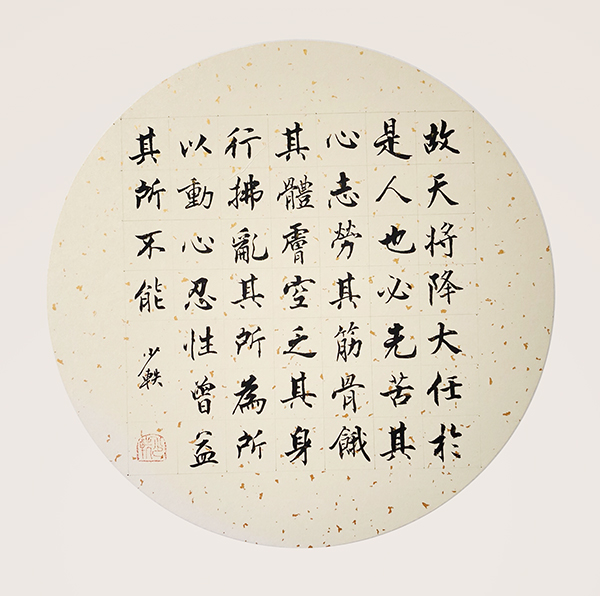 故天将降大任於
是人也必先苦其
心志勞其筋骨餓
其體膚空乏其身
行拂亂其所為所
以動心忍性曾益
其所不能
少軼